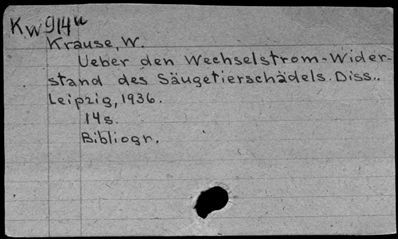 Kw914u
Krause, W.
Ueber den Wechselstrom-Wider-
stand des Säugetierschädels. Diss..
Leipzig, 1936.
14s.
Bibliogr.